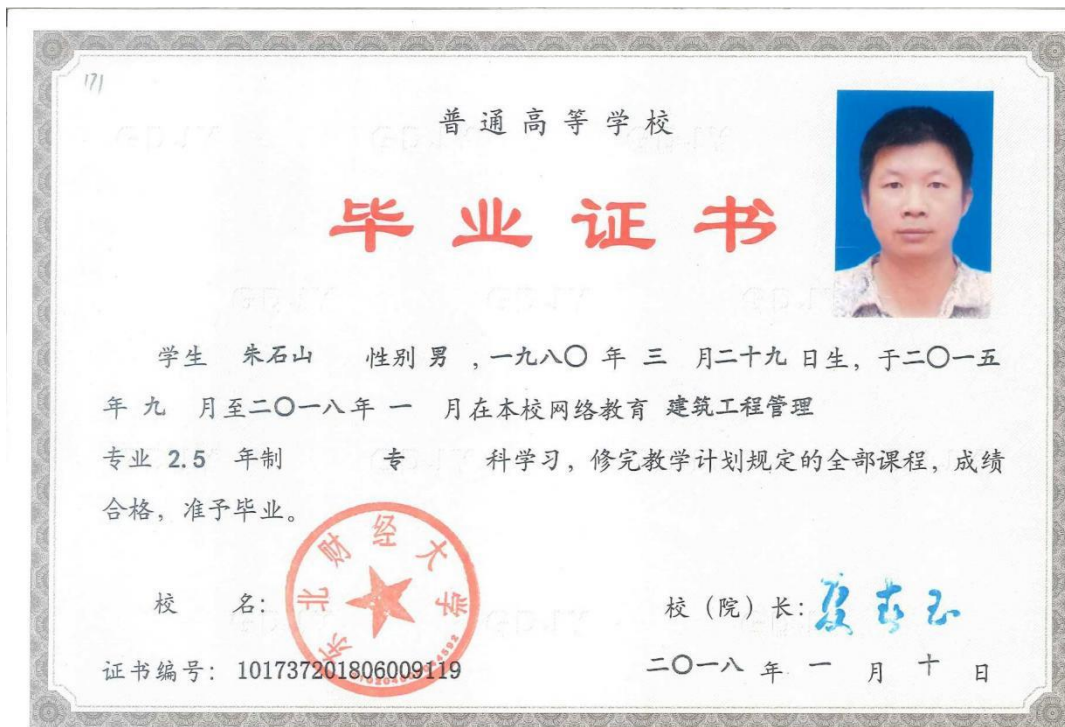 171
普通高等学校
毕业证书
学生 朱石山 性别 男 ,一九八〇 年 三 月二十九 日生，于二〇一五
年 九 月至二〇一八年 一 月在本校网络教育 建筑工程管理
专业 2.5 年制 专 科学习，修完教学计划规定的全部课程，成绩
合格，准予毕业。
校 名：
东北财经大学
校（院）长：夏春玉
证书编号：101737201806009119
二〇一八 年 一 月 十 日